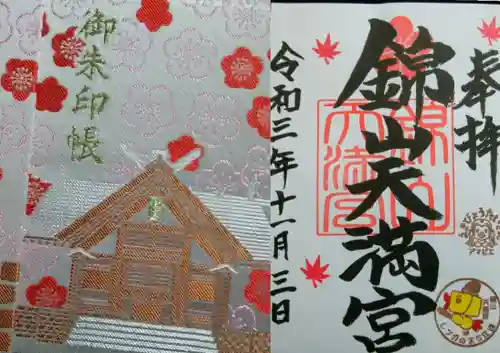 御朱印帳
奉拝
錦山天満宮
令和三年十一月三日
錦山
天満宮
アマビエ